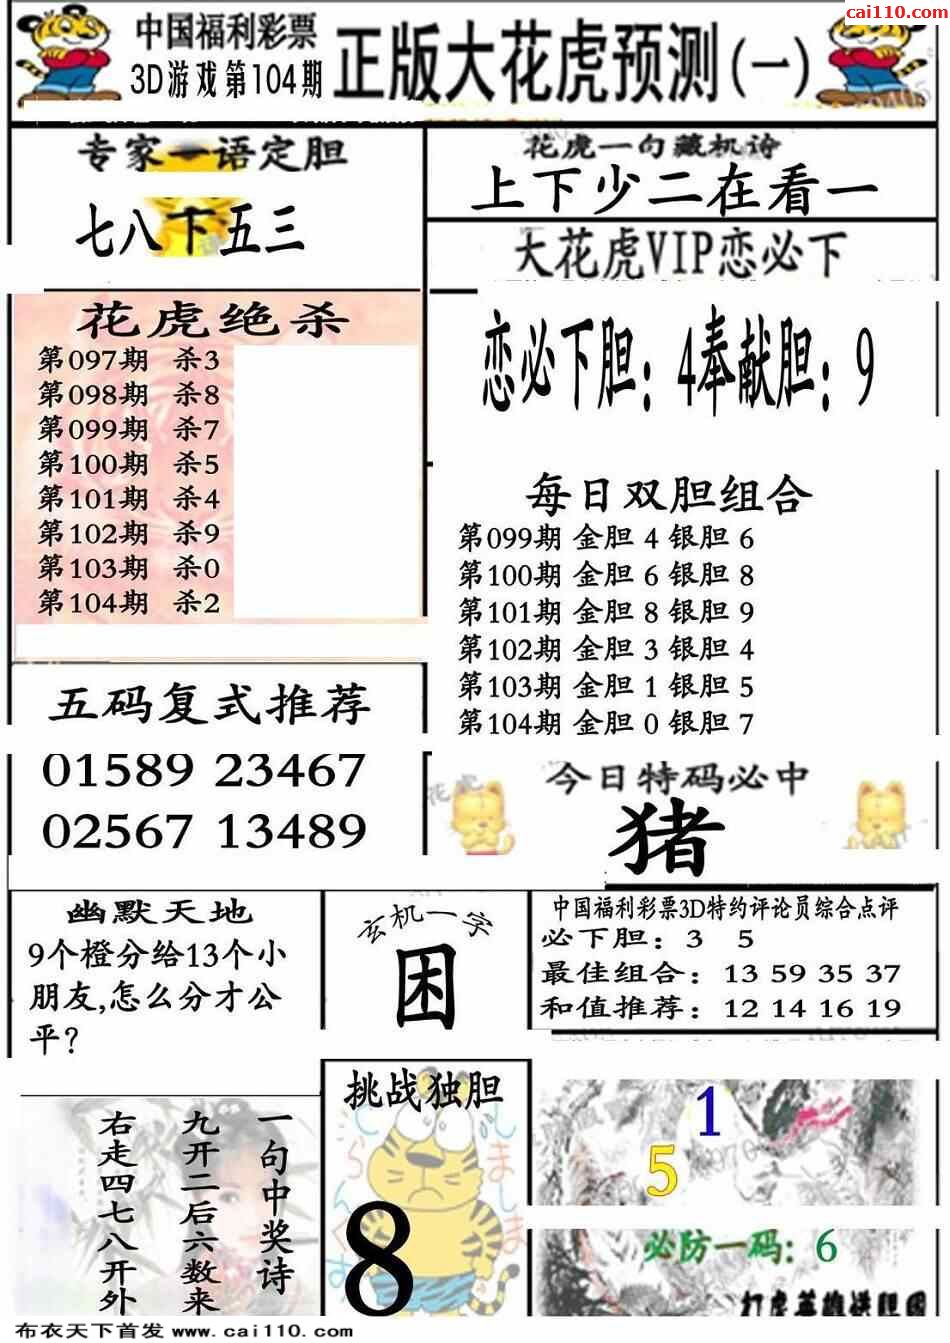 cai110.com
中国福利彩票
3D游戏第104期
正版大花虎预测(一)
专家一语定胆
七八下五三
花虎一句藏机诗
上下少二在看一
大花虎VIP恋必下
恋必下胆：4奉献胆：9
花虎绝杀
第097期 杀3
第098期 杀8
第099期 杀7
第100期 杀5
第101期 杀4
第102期 杀9
第103期 杀0
第104期 杀2
每日双胆组合
第099期 金胆 4 银胆 6
第100期 金胆 6 银胆 8
第101期 金胆 8 银胆 9
第102期 金胆 3 银胆 4
第103期 金胆 1 银胆 5
第104期 金胆 0 银胆 7
五码复式推荐
01589 23467
02567 13489
今日特码必中
猪
幽默天地
9个橙分给13个小
朋友,怎么分才公
平?
玄机一字
困
中国福利彩票3D特约评论员综合点评
必下胆：3 5
最佳组合：13 59 35 37
和值推荐：12 14 16 19
一句中奖诗
九开二后六数来
右走四七八开外
挑战独胆
8
1
5
必防一码：6
布衣天下首发 www.cai110.com